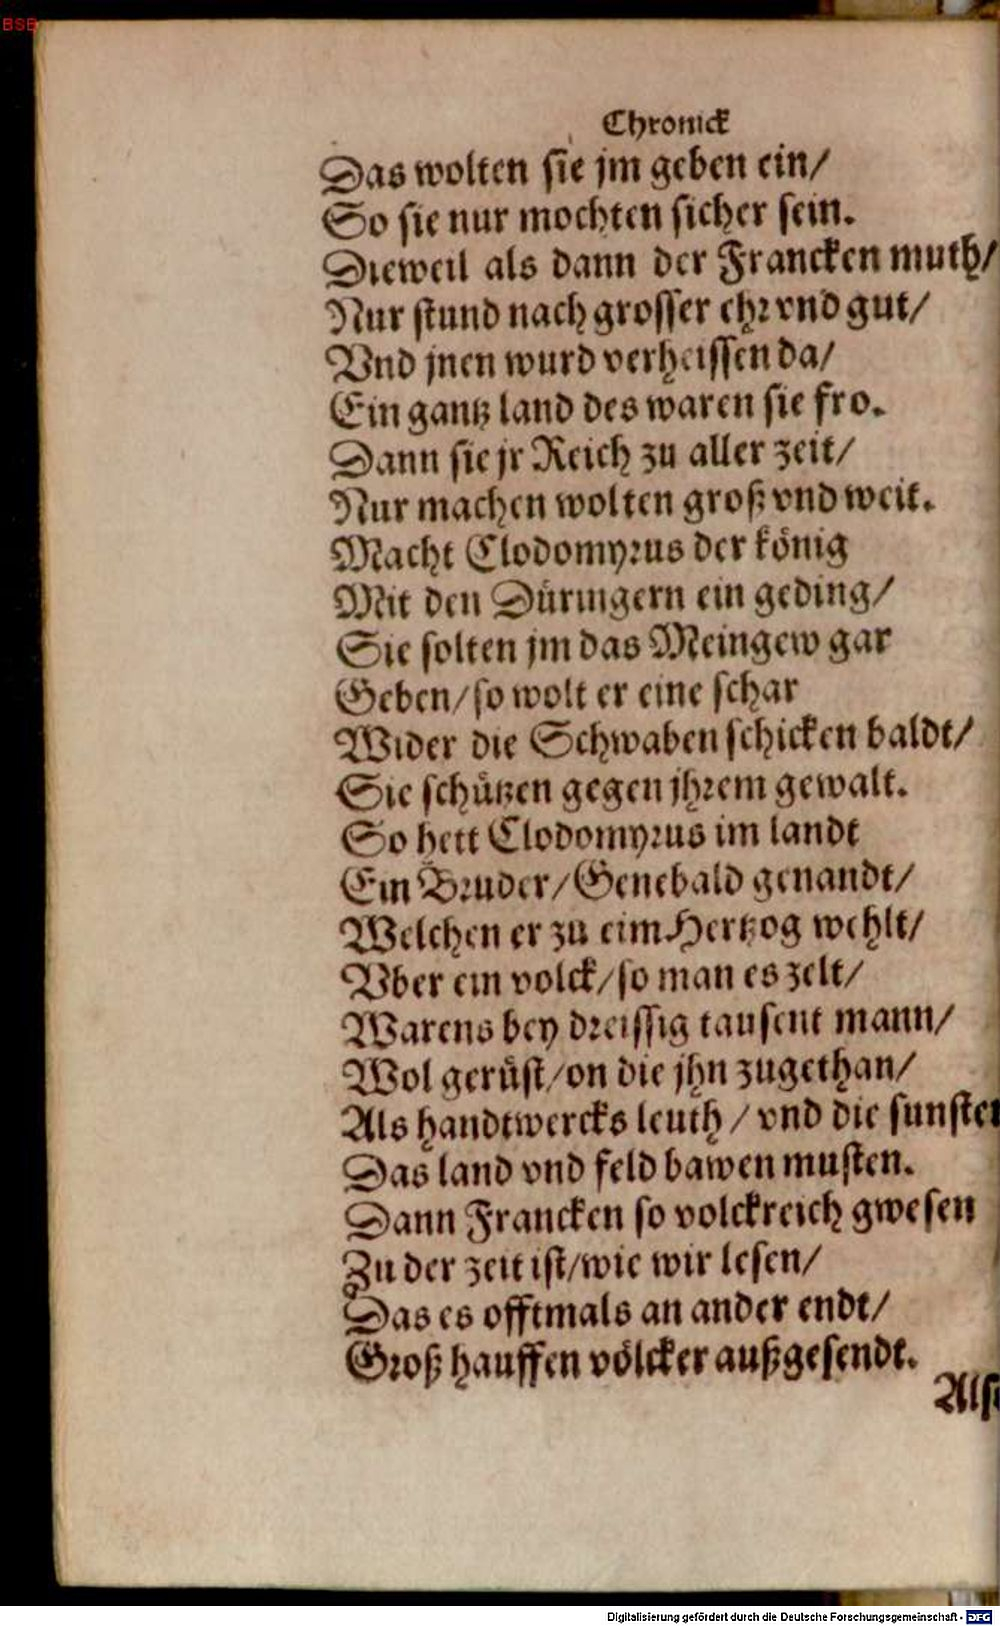 BSB
Chronick
Das wolten sie jm geben ein/
So sie nur mochten sicher sein.
Dieweil als dann der Francken muth/
Nur stund nach grosser ehr vnd gut/
Vnd jnen wurd verheissen da/
Ein gantz land des waren sie fro.
Dann sie jr Reich zu aller zeit/
Nur machen wolten groß vnd weit.
Macht Clodomyrus der könig
Mit den Düringern ein geding/
Sie solten jm das Meingew gar
Geben/so wolt er eine schar
Wider die Schwaben schicken baldt/
Sie schützen gegen jhrem gewalt.
So hett Clodomyrus im landt
Ein Bruder/Genebald genandt/
Welchen er zu eim Hertzog wehlt/
Vber ein volck/so man es zelt/
Warens bey dreissig tausent mann/
Wol gerüst/on die jhn zugethan/
Als handtwercks leuth/vnd die sunsten
Das land vnd feld bawen musten.
Dann Francken so volckreich gwesen
Zu der zeit ist/wie wir lesen/
Das es offtmals an ander endt/
Groß hauffen völcker außgesendt.
Als
Digitalisierung gefördert durch die Deutsche Forschungsgemeinschaft - DFG